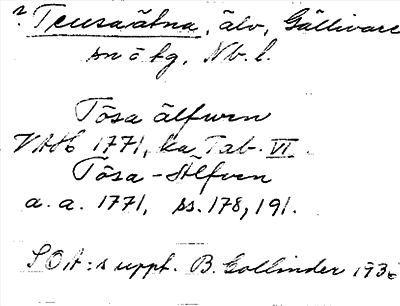 Teusaätna, älv, Gällivare
sn o tg, Nb. l.
Tösa älfwen
VAH 1771, ka Tab. VI.
Tösa-Älfven
a. a. 1771, ss. 178, 191.
SOA:s uppt. B. Collinder 1936